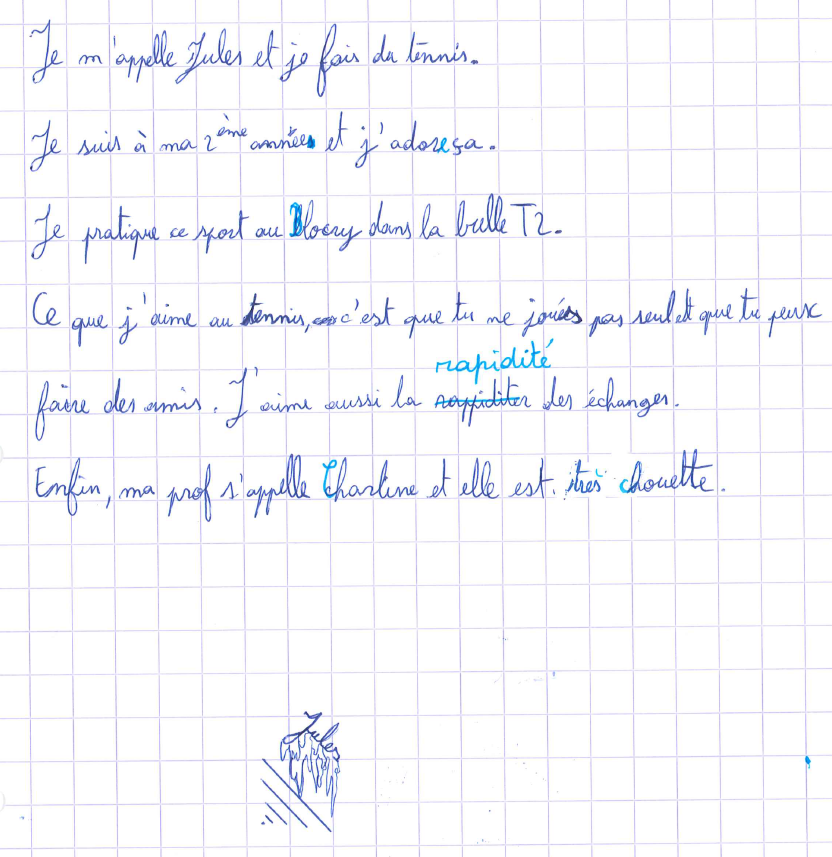 Je m'appelle Jules et je fais du tennis.
Je suis à ma 2ème année et j'adore ça.
Je pratique ce sport au Blocry dans la bulle T2.
Ce que j'aime au tennis, c'est que tu ne joues pas seul et que tu peux
rapidité
faire des amis. J'aime aussi la rappiditer des échanges.
Enfin, ma prof s'appelle Charline et elle est très chouette.
Jules